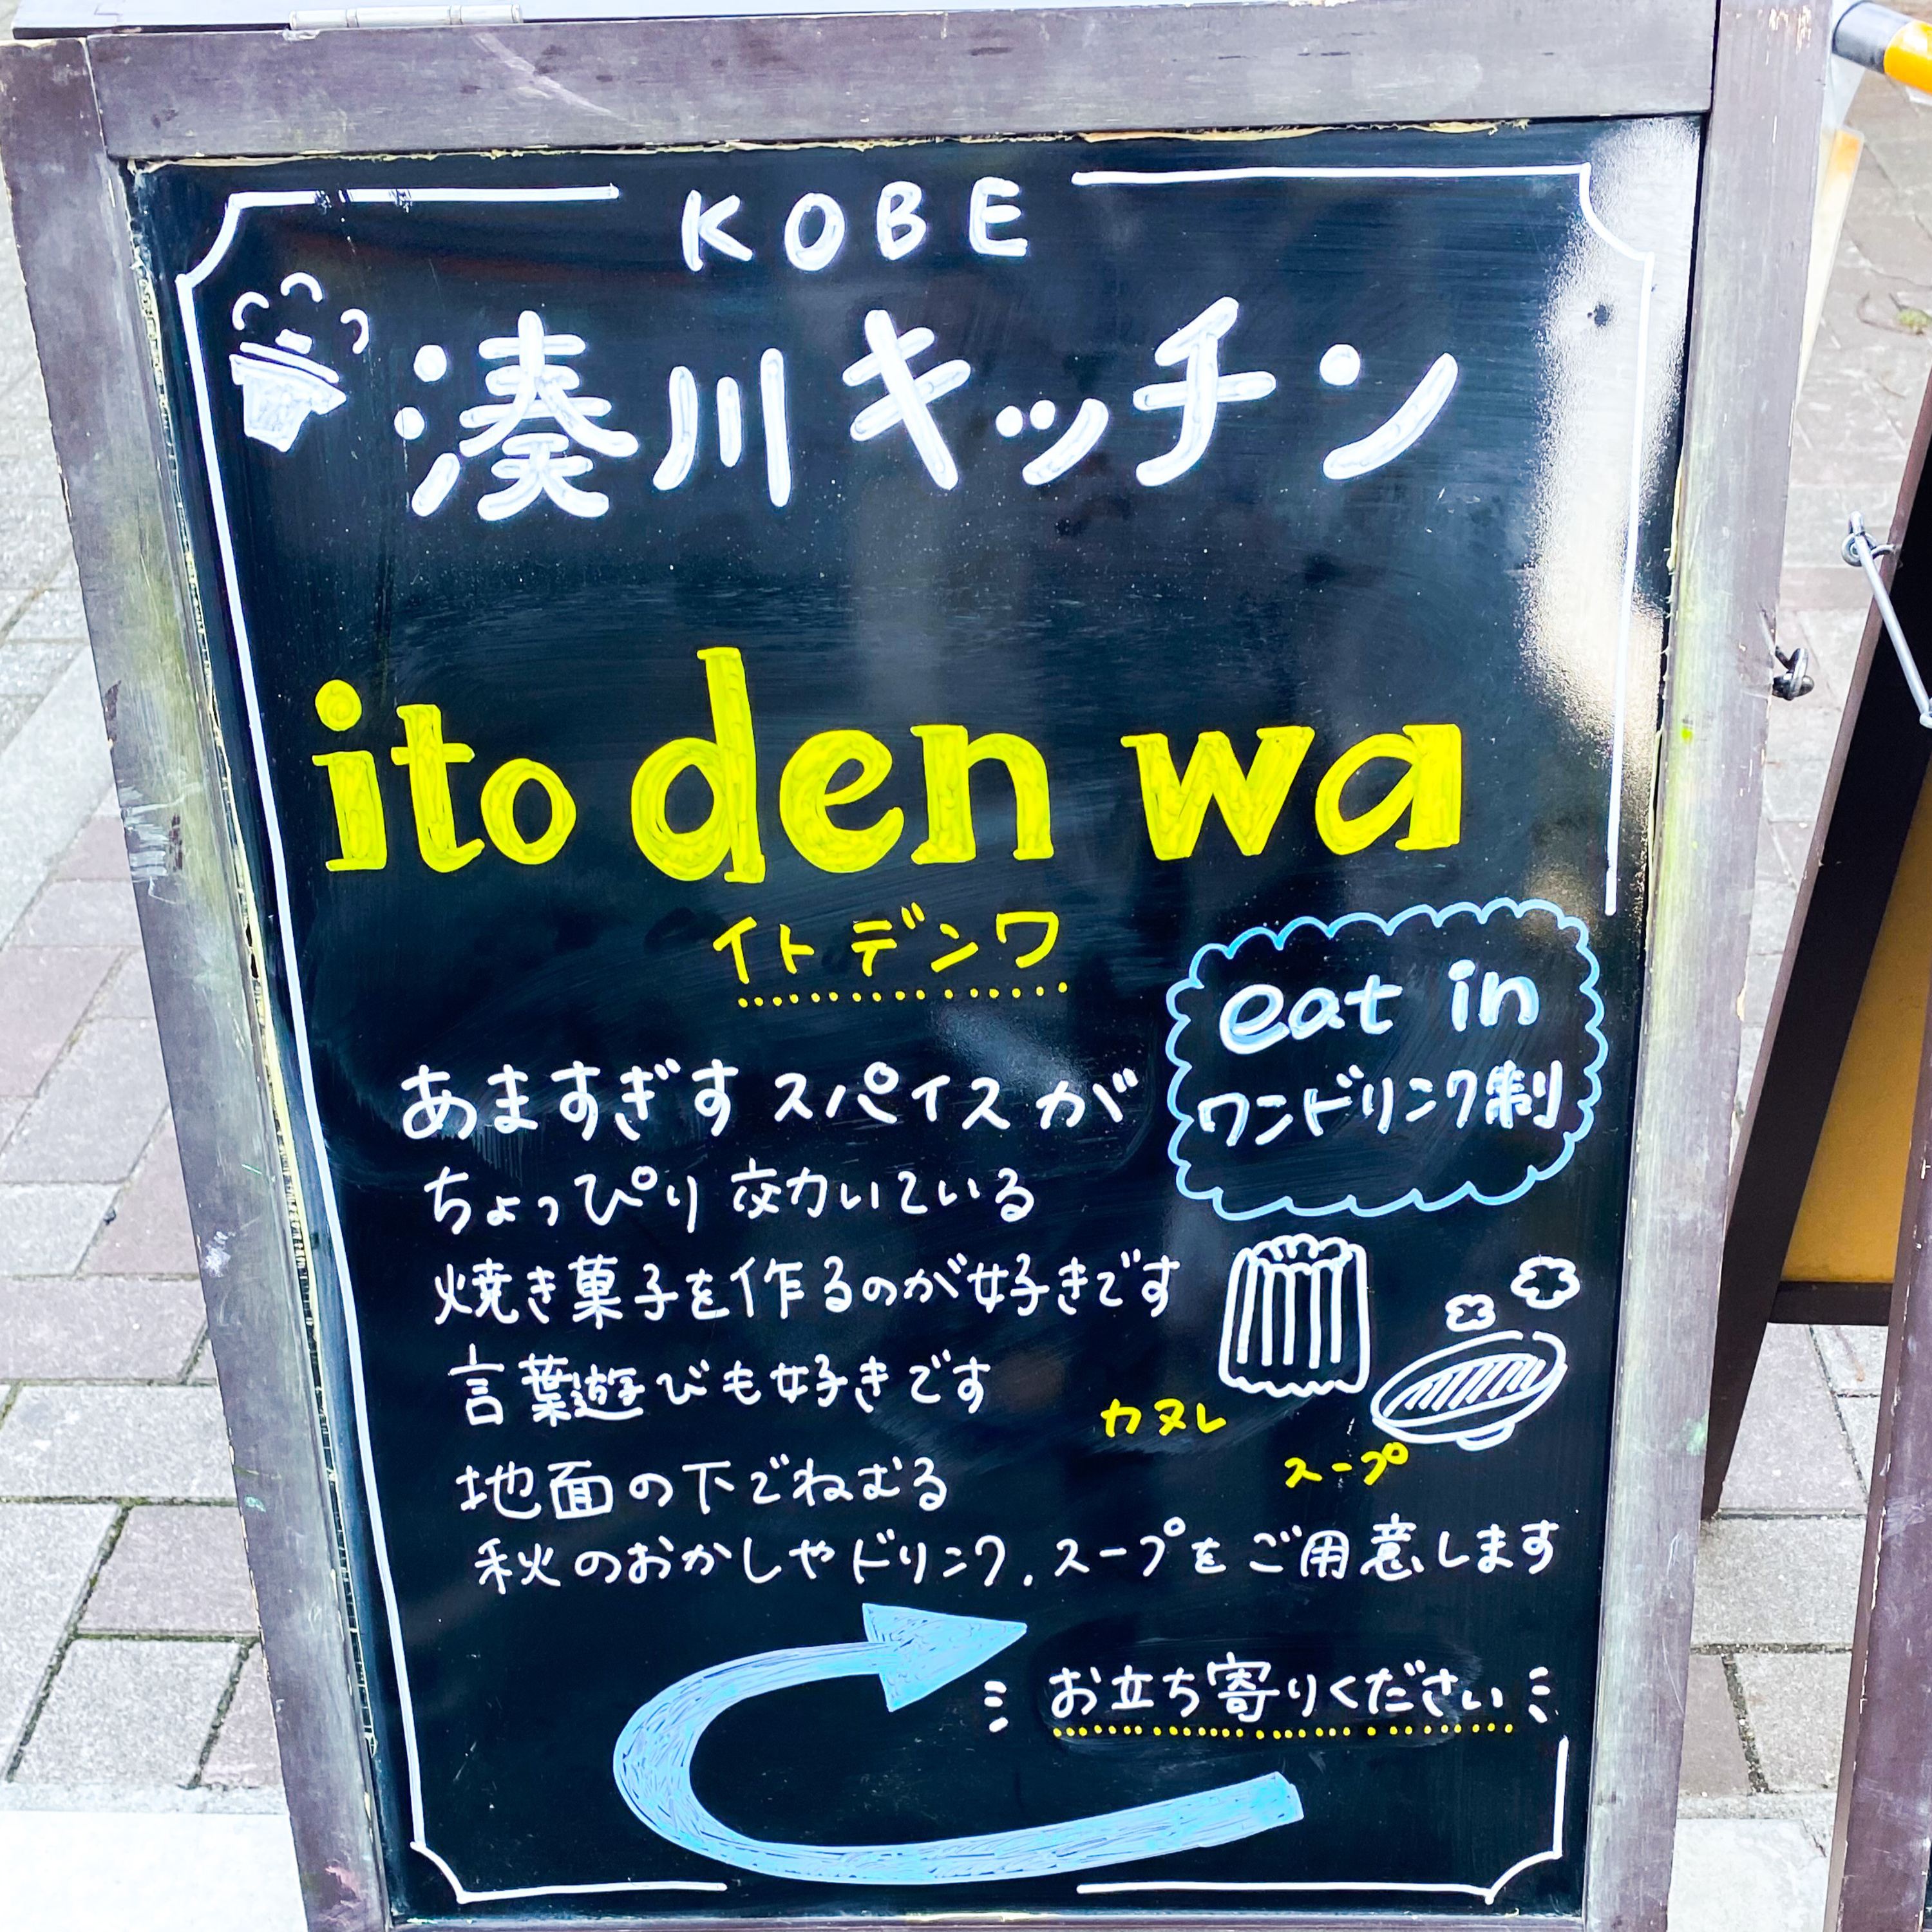 KOBE
湊川キッチン
ito den wa
イトデンワ
eat in
ワンドリンク制
あますぎず スパイスが
ちょっぴり効いている
焼き菓子を作るのが好きです
言葉遊びも好きです
カヌレ
スープ
地面の下でねむる
秋のおかしやドリンク.スープをご用意します
お立ち寄りください